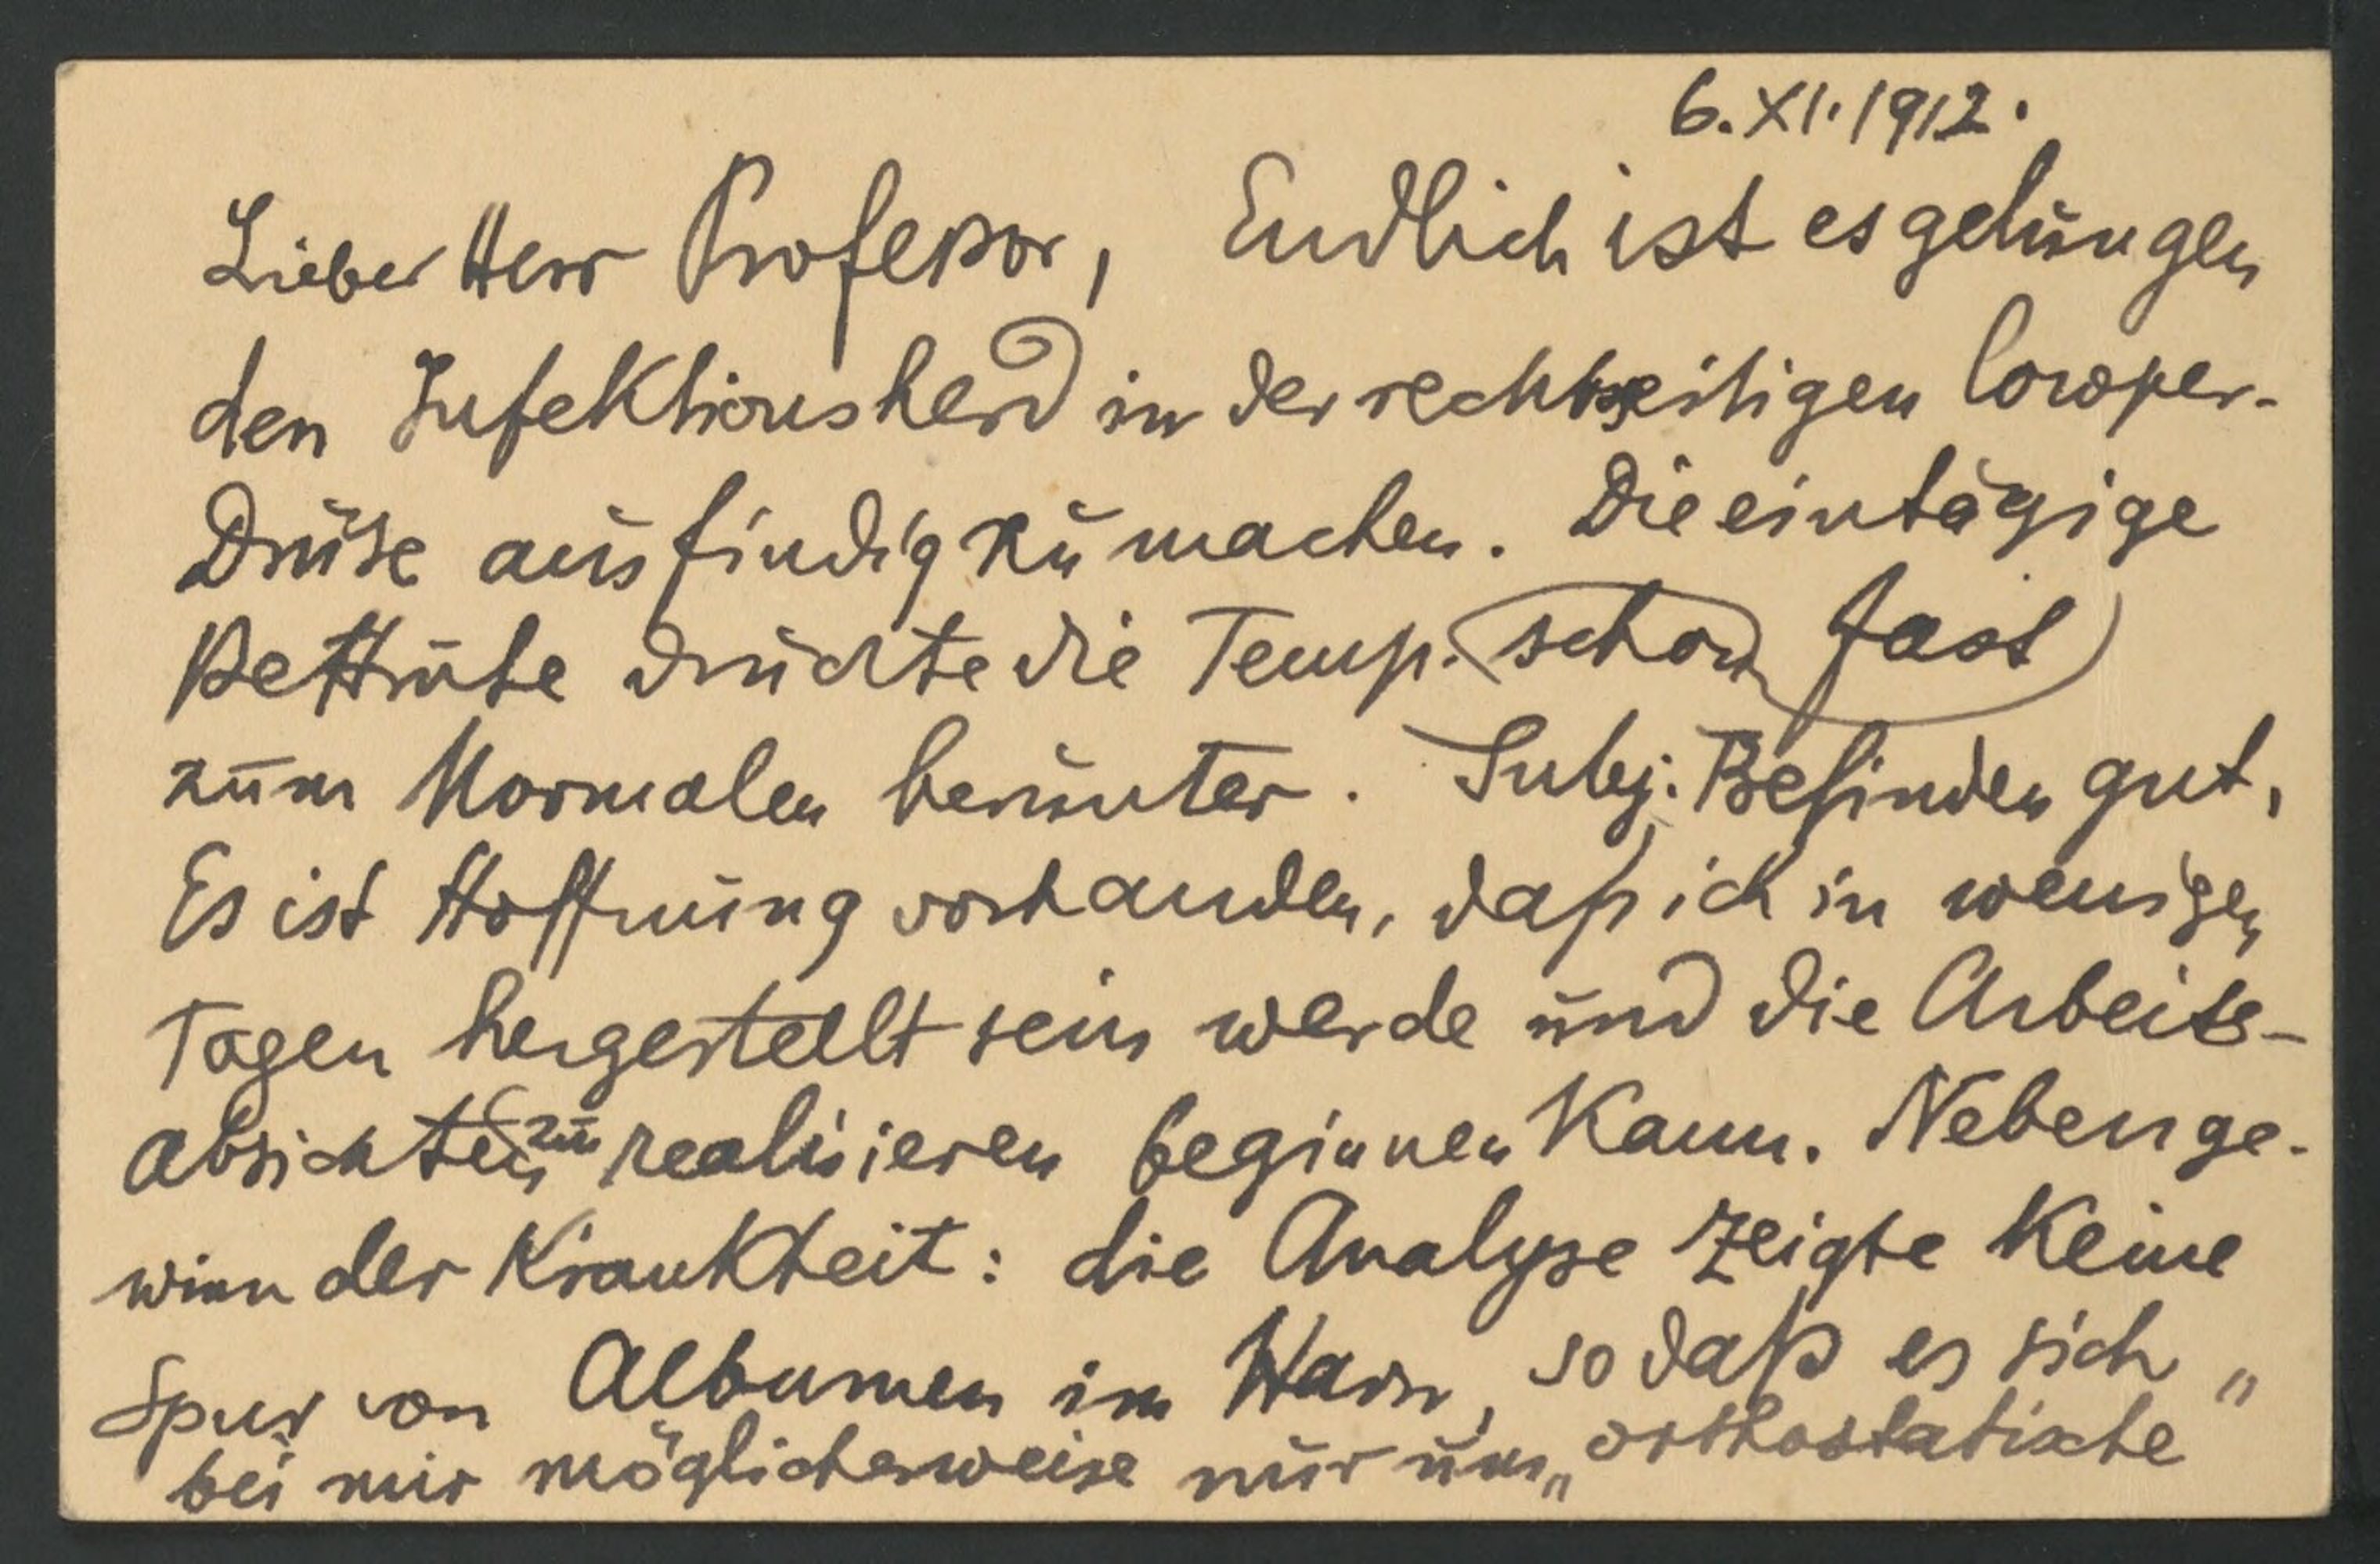 6. XI. 1912.
Lieber Herr Professor, Endlich ist es gelungen
den Infektionsherd in der rechtsseitigen Cowper-
Drüse ausfindig zu machen. Die eintägige
Bettruhe drückte die Temp. (schon fast)
zum Normalen herunter. Subj. Befinden gut,
Es ist Hoffnung vorhanden, daß ich in wenigen
Tagen hergestellt sein werde und die Arbeits-
absichten zu realisieren beginnen kann. Nebenge-
winn der Krankheit: die Analyse zeigte keine
Spur von Albumen im Harn, so daß es sich
bei mir möglicherweise nur um „orthostatische"